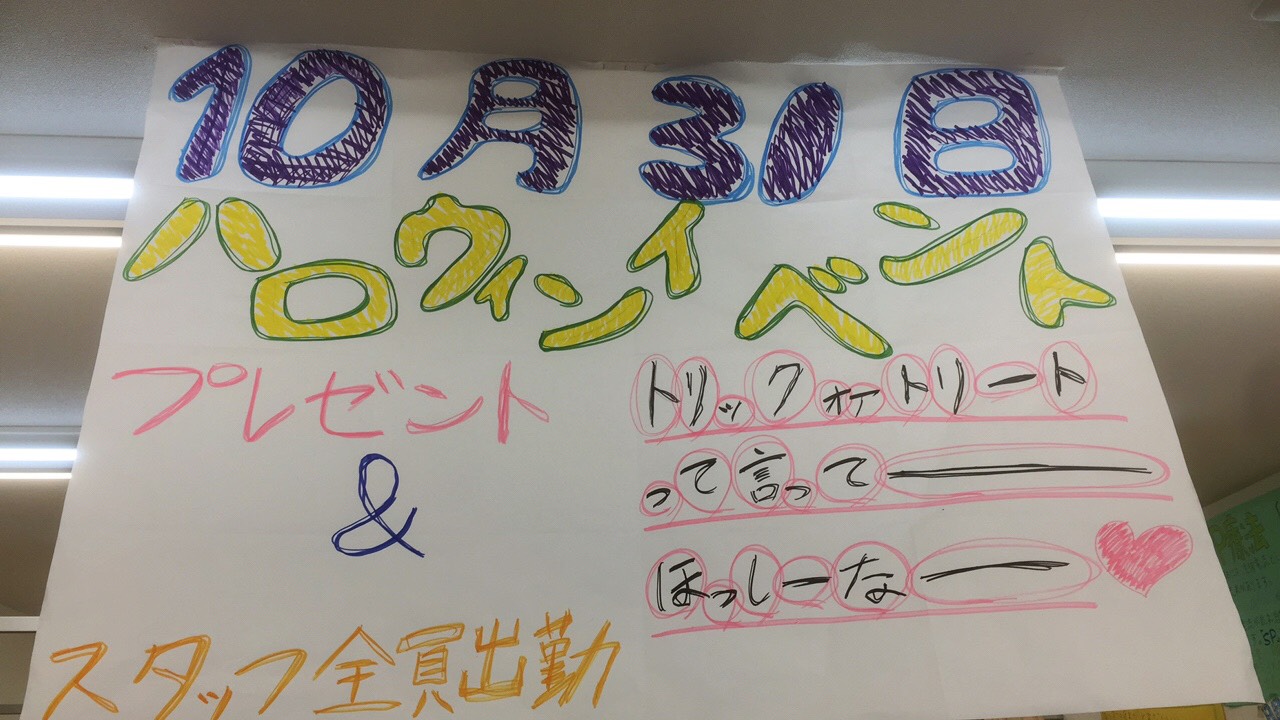 10月31日
ハロウィンイベント
プレゼント
&
スタッフ全員出勤
トリックオアトリート
って言ってー
ほっしーなー